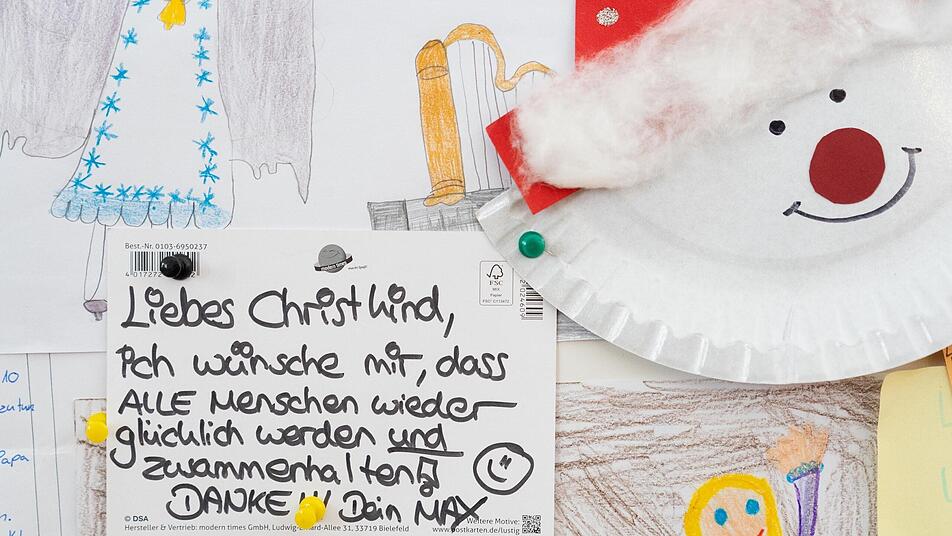 10
Papa
Best.-Nr. 0103-6950237
4 017272
FSC
MIX
Papier
Liebes Christkind,
ich wünsche mir, dass
ALLE Menschen wieder
glücklich werden und
zusammenhalten
DANKE!!! Dein MAX
© DSA
Hersteller & Vertrieb: modern times GmbH, Ludwig-Erhard-Allee 31, 33719 Bielefeld
Weitere Motive:
www.postkarten.de/lustig